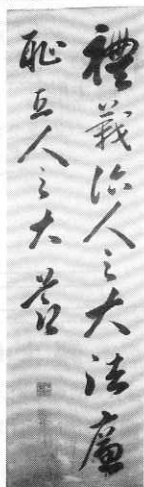 禮義治人之大法廉
耻立人之大節